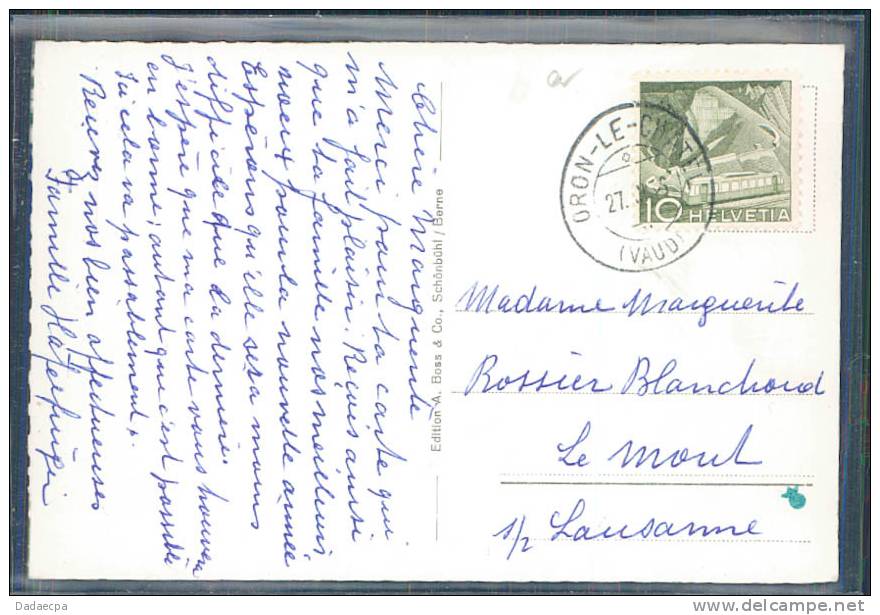 Chère Marguerite
Merci pour ta carte qui
m'a fait plaisir. Reçues ainsi
que ta famille nos meilleurs
voeux pour la nouvelle année
Espérons qu'elle sera moins
difficile que la dernière.
J'espère que ma carte vous trouvera
en bonne, autant que c'est possible
Ici cela va passablement.
Recevez nos bien affectueuses
Famille
Edition A. Boss & Co., Schönbühl / Berne
ORON-LE-CHÂTEL
27.
(VAUD)
10 HELVETIA
Madame Marguerite
Rossier Blanchoud
Le Mont
s/ Lausanne
Dadaecpa
http://www.delcampe.net